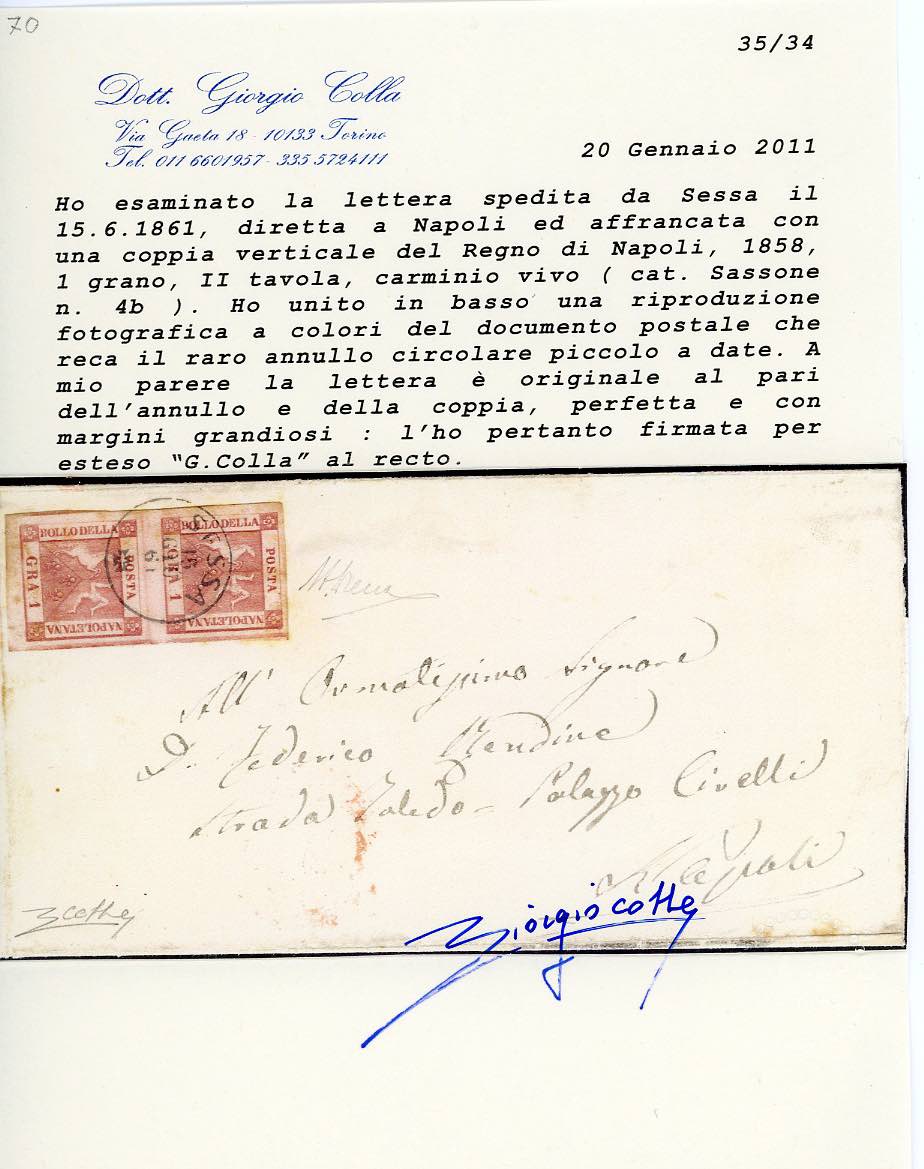 70
35/34
Dott. Giorgio Colla
Via Gaeta 18 - 10133 Torino
Tel. 011 6601957 - 335 5724111
20 Gennaio 2011
Ho esaminato la lettera spedita da Sessa il
15.6.1861, diretta a Napoli ed affrancata con
una coppia verticale del Regno di Napoli, 1858,
1 grano, II tavola, carminio vivo ( cat. Sassone
n. 4b ). Ho unito in basso una riproduzione
fotografica a colori del documento postale che
reca il raro annullo circolare piccolo a date. A
mio parere la lettera è originale al pari
dell'annullo e della coppia, perfetta e con
margini grandiosi : l'ho pertanto firmata per
esteso "G.Colla" al recto.
BOLLO DELLA
POSTA
NAPOLETANA
GRA 1
BOLLO DELLA
POSTA
NAPOLETANA
GRA 1
SESSA
15
GIU
61
All' Ornatissimo Signore
D. Federico
Strada Toledo - Palazzo Civelli
Napoli
GColla
Giorgio Colla